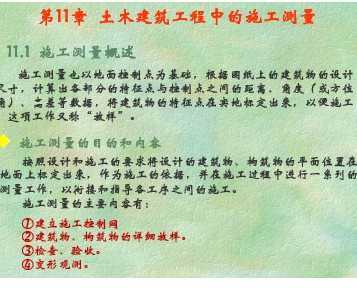 第11章 土木建筑工程中的施工测量
11.1 施工测量概述
施工测量也以地面控制点为基础，根据图纸上的建筑物的设计
尺寸，计算出各部分的特征点与控制点之间的距离、角度（或方位
角）、高差等数据，将建筑物的特征点在实地标定出来，以便施工，
这项工作又称“放样”。
施工测量的目的和内容
按照设计和施工的要求将设计的建筑物、构筑物的平面位置在
地面上标定出来，作为施工的依据，并在施工过程中进行一系列的
测量工作，以衔接和指导各工序之间的施工。
施工测量的主要内容有：
①建立施工控制网
②建筑物、构筑物的详细放样。
③检查、验收。
④变形观测。